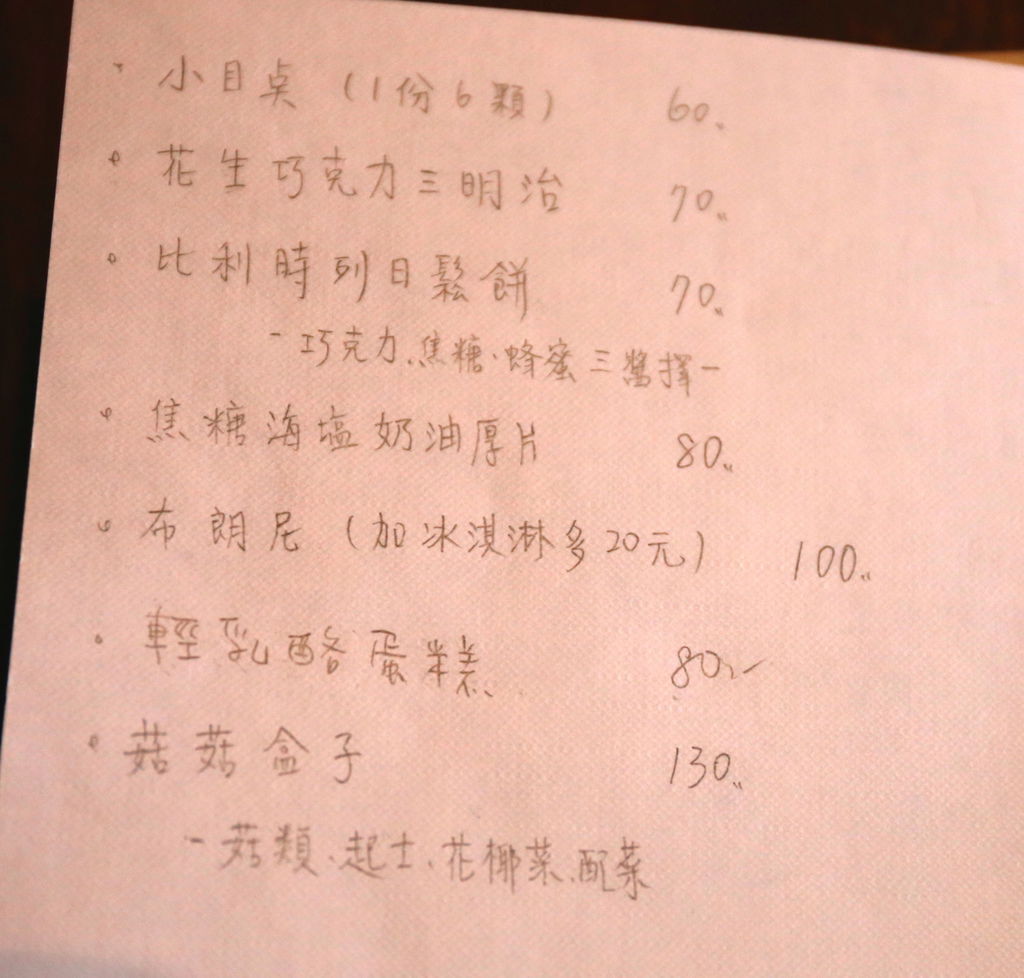 • 小目点 (1份6顆) 60.
• 花生巧克力三明治 70.
• 比利時列日鬆餅 70.
- 巧克力、焦糖、蜂蜜三醬擇一
• 焦糖海塩奶油厚片 80.
• 布朗尼 (加冰淇淋多20元) 100.
• 輕乳酪蛋糕 80.-
• 菇菇盒子 130.
- 菇類、起士、花椰菜、配菜